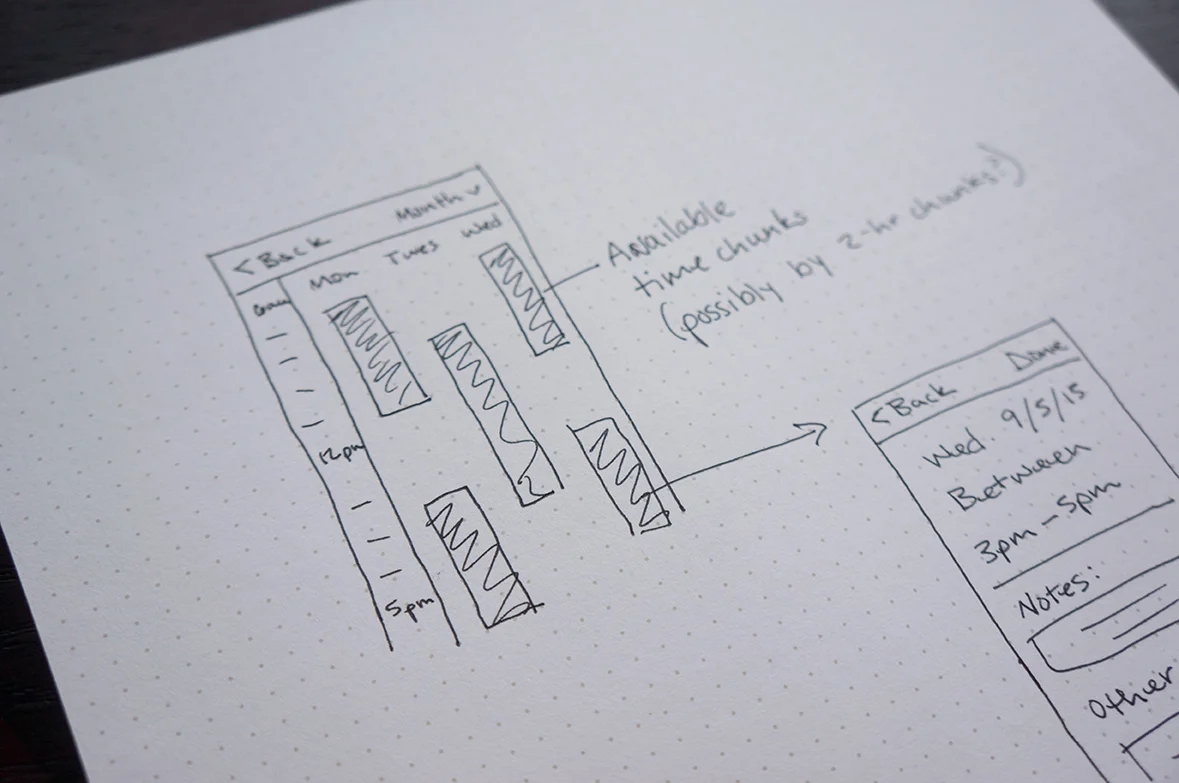 < Back Month
Mon Tues Wed
12pm
5pm
Available
time chunks
(possibly by 2-hr chunks?)
< Back Done
Wed. 9/5/15
Between
3pm – 5pm
Notes:
Other